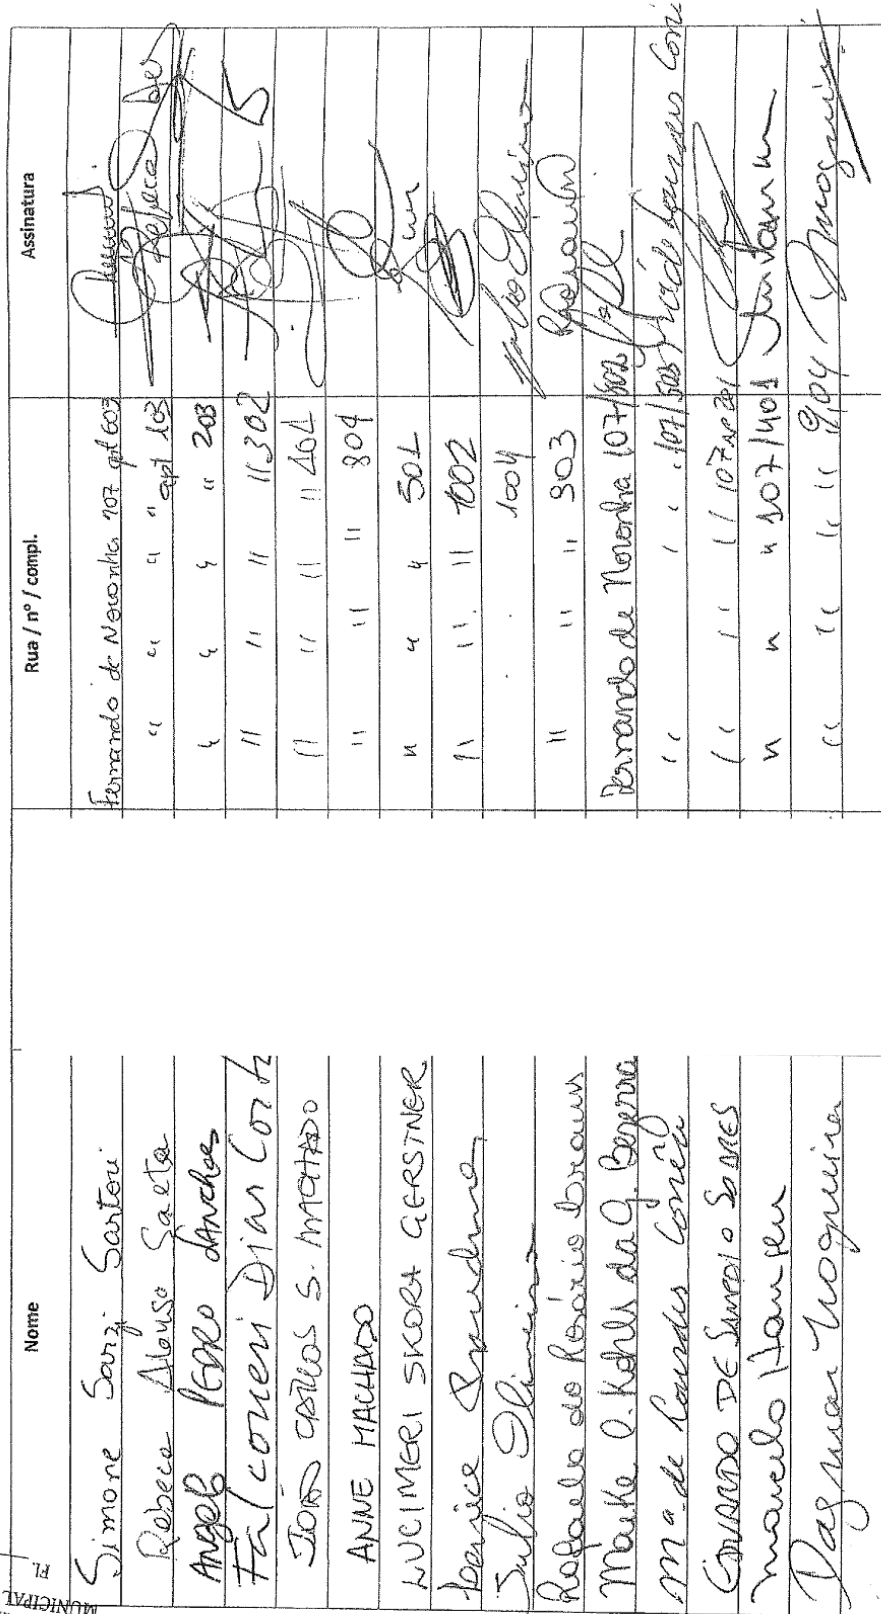 MUNICIPAL
FL
Nome Rua / nº / compl. Assinatura
Simone Sarzi Sartori Fernando de Noronha 107 apt 603
Rebeca Alonso Salta " " " " apt 103 Rebeca
Angelo PEDRO SANCHES " " " " 203
Falconeri Dias Cort " " " " 302
JOÃO CARLOS S. MACHADO " " " " 401
ANNE MACHADO " " " 804
LUCIMERI SKORA GERSTNER " " " 501
Berenice " " " 1002
Julio Oliveira 1004 Julio Oliveira
Rafaela do Rosário Brauns " " " 903
Marike O. Kohls da G. Bezerra Fernando de Noronha 107/802
Mª de Lourdes Corrêa " " " 107/503 Mª de Lourdes Corrê
EDUARDO DE SAMPAIO SOARES " " " 107 ap 201
Marcelo Hansen " " " 107/401
Dagmar Nogueira " " " " 904 Nogueira